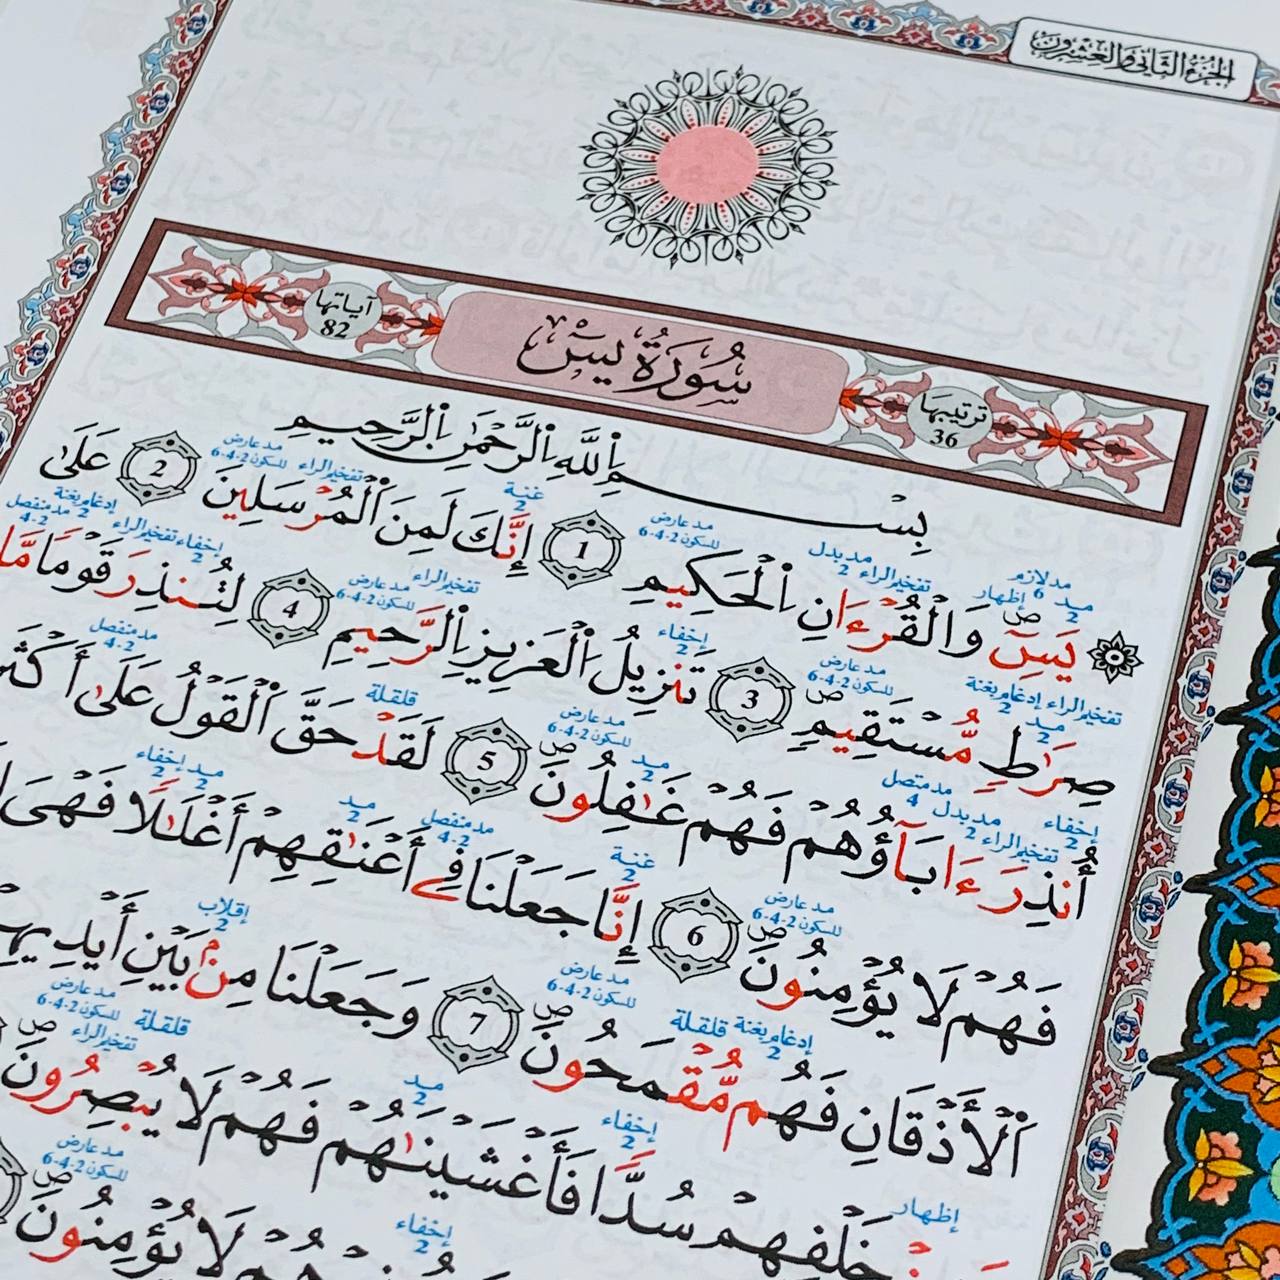 الجزء الثاني والعشرون
ترتيبها 36 سُورَةُ يسٓ آياتها 82
بِسْمِ اِللَّهِ اِلرَّحْمَٰنِ اِلرَّحِيمِ
مد لازم 6 مد 2 ص إظهار مد بدل 2 تفخيم الراء مد عارض للسكون 2-4-6 غنة 2 تفخيم الراء مد عارض للسكون 2-4-6
يَسِٓ وَالْقُرْءَانِ اِلْحَكِيمِ 1 إِنَّكَ لَمِنَ اَلْمُرْسَلِينَ 2 عَلَىٰ
تفخيم الراء مد 2 إدغام بغنة 2 ص مد عارض للسكون 2-4-6 إخفاء 2 تفخيم الراء مد عارض للسكون 2-4-6 إخفاء 2 تفخيم الراء إدغام بغنة 2 مد منفصل 2-4
صِرَٰطٍ مُّسْتَقِيمٍ 3 تَنزِيلُ اَلْعَزِيزِ اِلرَّحِيمِ 4 لِتُنذِرَ قَوْمًا مَّا
إخفاء 2 تفخيم الراء مد بدل 2 مد متصل 4 مد 2 ص مد عارض للسكون 2-4-6 قلقلة مد منفصل 2-4
أُنذِرَ ءَابَآؤُهُمْ فَهُمْ غَٰفِلُونَ 5 لَقَدْ حَقَّ اَلْقَوْلُ عَلَىٰ
ص مد عارض للسكون 2-4-6 غنة 2 مد منفصل 2-4 مد 2 مد 2 إخفاء 2
فَهُمْ لَا يُؤْمِنُونَ 6 إِنَّا جَعَلْنَا فِے أَعْنَٰقِهِمْ أَغْلَٰلًا فَهِىَ
إدغام بغنة 2 قلقلة ص مد عارض للسكون 2-4-6 إقلاب 2
اَلْأَذْقَانِ فَهُم مُّقْمَحُونَ 7 وَجَعَلْنَا مِنۢ بَيْنِ
إظهار إخفاء 2 مد 2 قلقلة تفخيم الراء ص مد عارض للسكون 2-4-6
خَلْفِهِمْ سُدًّا فَأَغْشَيْنَٰهُمْ فَهُمْ لَا يُبْصِرُونَ
إخفاء 2 ص مد عارض للسكون 2-4-6
لَا يُؤْمِنُونَ